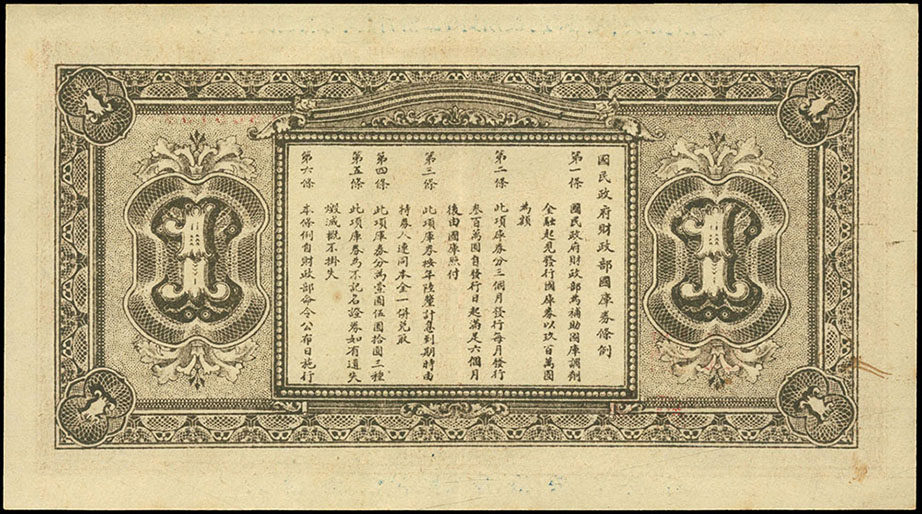 國民政府財政部國庫券條例
第一條　國民政府財政部為補助國庫調劑
金融起見發行國庫券以玖百萬圓
為額
第二條　此項庫券分三個月發行每月發行
叁百萬圓自發行日起滿足六個月
後由國庫照付
第三條　此項庫券按年陸釐計息到期時由
持券人連同本金一併兌取
第四條　此項庫券分為壹圓伍圓拾圓三種
第五條　此項庫券為不記名證券如有遺失
燬滅概不掛失
第六條　本條例自財政部命令公布日施行
1
1